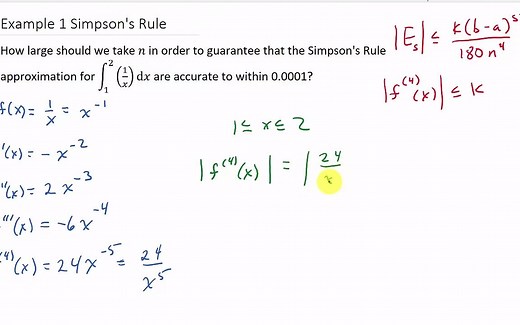 Example 1 Simpson's Rule
How large should we take n in order to guarantee that the Simpson's Rule
approximation for ∫₁² (1/x) dx are accurate to within 0.0001?
|Eₛ| ≤ k(b-a)⁵ / 180n⁴
|f⁽⁴⁾(x)| ≤ k
f(x) = 1/x = x⁻¹
'(x) = -x⁻²
''(x) = 2x⁻³
'''(x) = -6x⁻⁴
⁽⁴⁾(x) = 24x⁻⁵ = 24/x⁵
1 ≤ x ≤ 2
|f⁽⁴⁾(x)| = |24/x